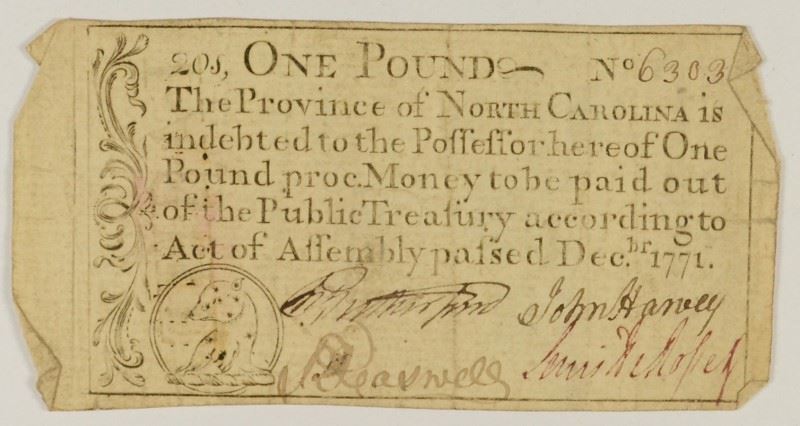 20s, ONE POUND No 6303
The Province of NORTH CAROLINA is
indebted to the Poſſeſſor hereof One
Pound proc. Money to be paid out
of the Public Treaſury according to
Act of Aſſembly paſsed Dec.br 1771.
Rutherfurd John Harvey
R Caswell Lewis De Rosset